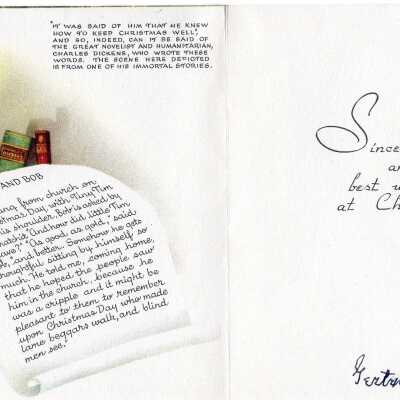 "IT WAS SAID OF HIM THAT HE KNEW
HOW TO KEEP CHRISTMAS WELL",
AND SO, INDEED, CAN IT BE SAID OF
THE GREAT NOVELIST AND HUMANITARIAN,
CHARLES DICKENS, WHO WROTE THESE
WORDS. THE SCENE HERE DEPICTED
IS FROM ONE OF HIS IMMORTAL STORIES.
AND BOB
from church on
Day with Tiny Tim
his shoulder, Bob is asked by
"And how did little Tim
"As good as gold," said
and better. Somehow he gets
thoughtful sitting by himself so
much. He told me, coming home,
that he hoped the people saw
him in the church, because he
was a cripple and it might be
pleasant to them to remember
upon Christmas Day who made
lame beggars walk, and blind
men see."
Since
an
best w
at Ch
Gertr